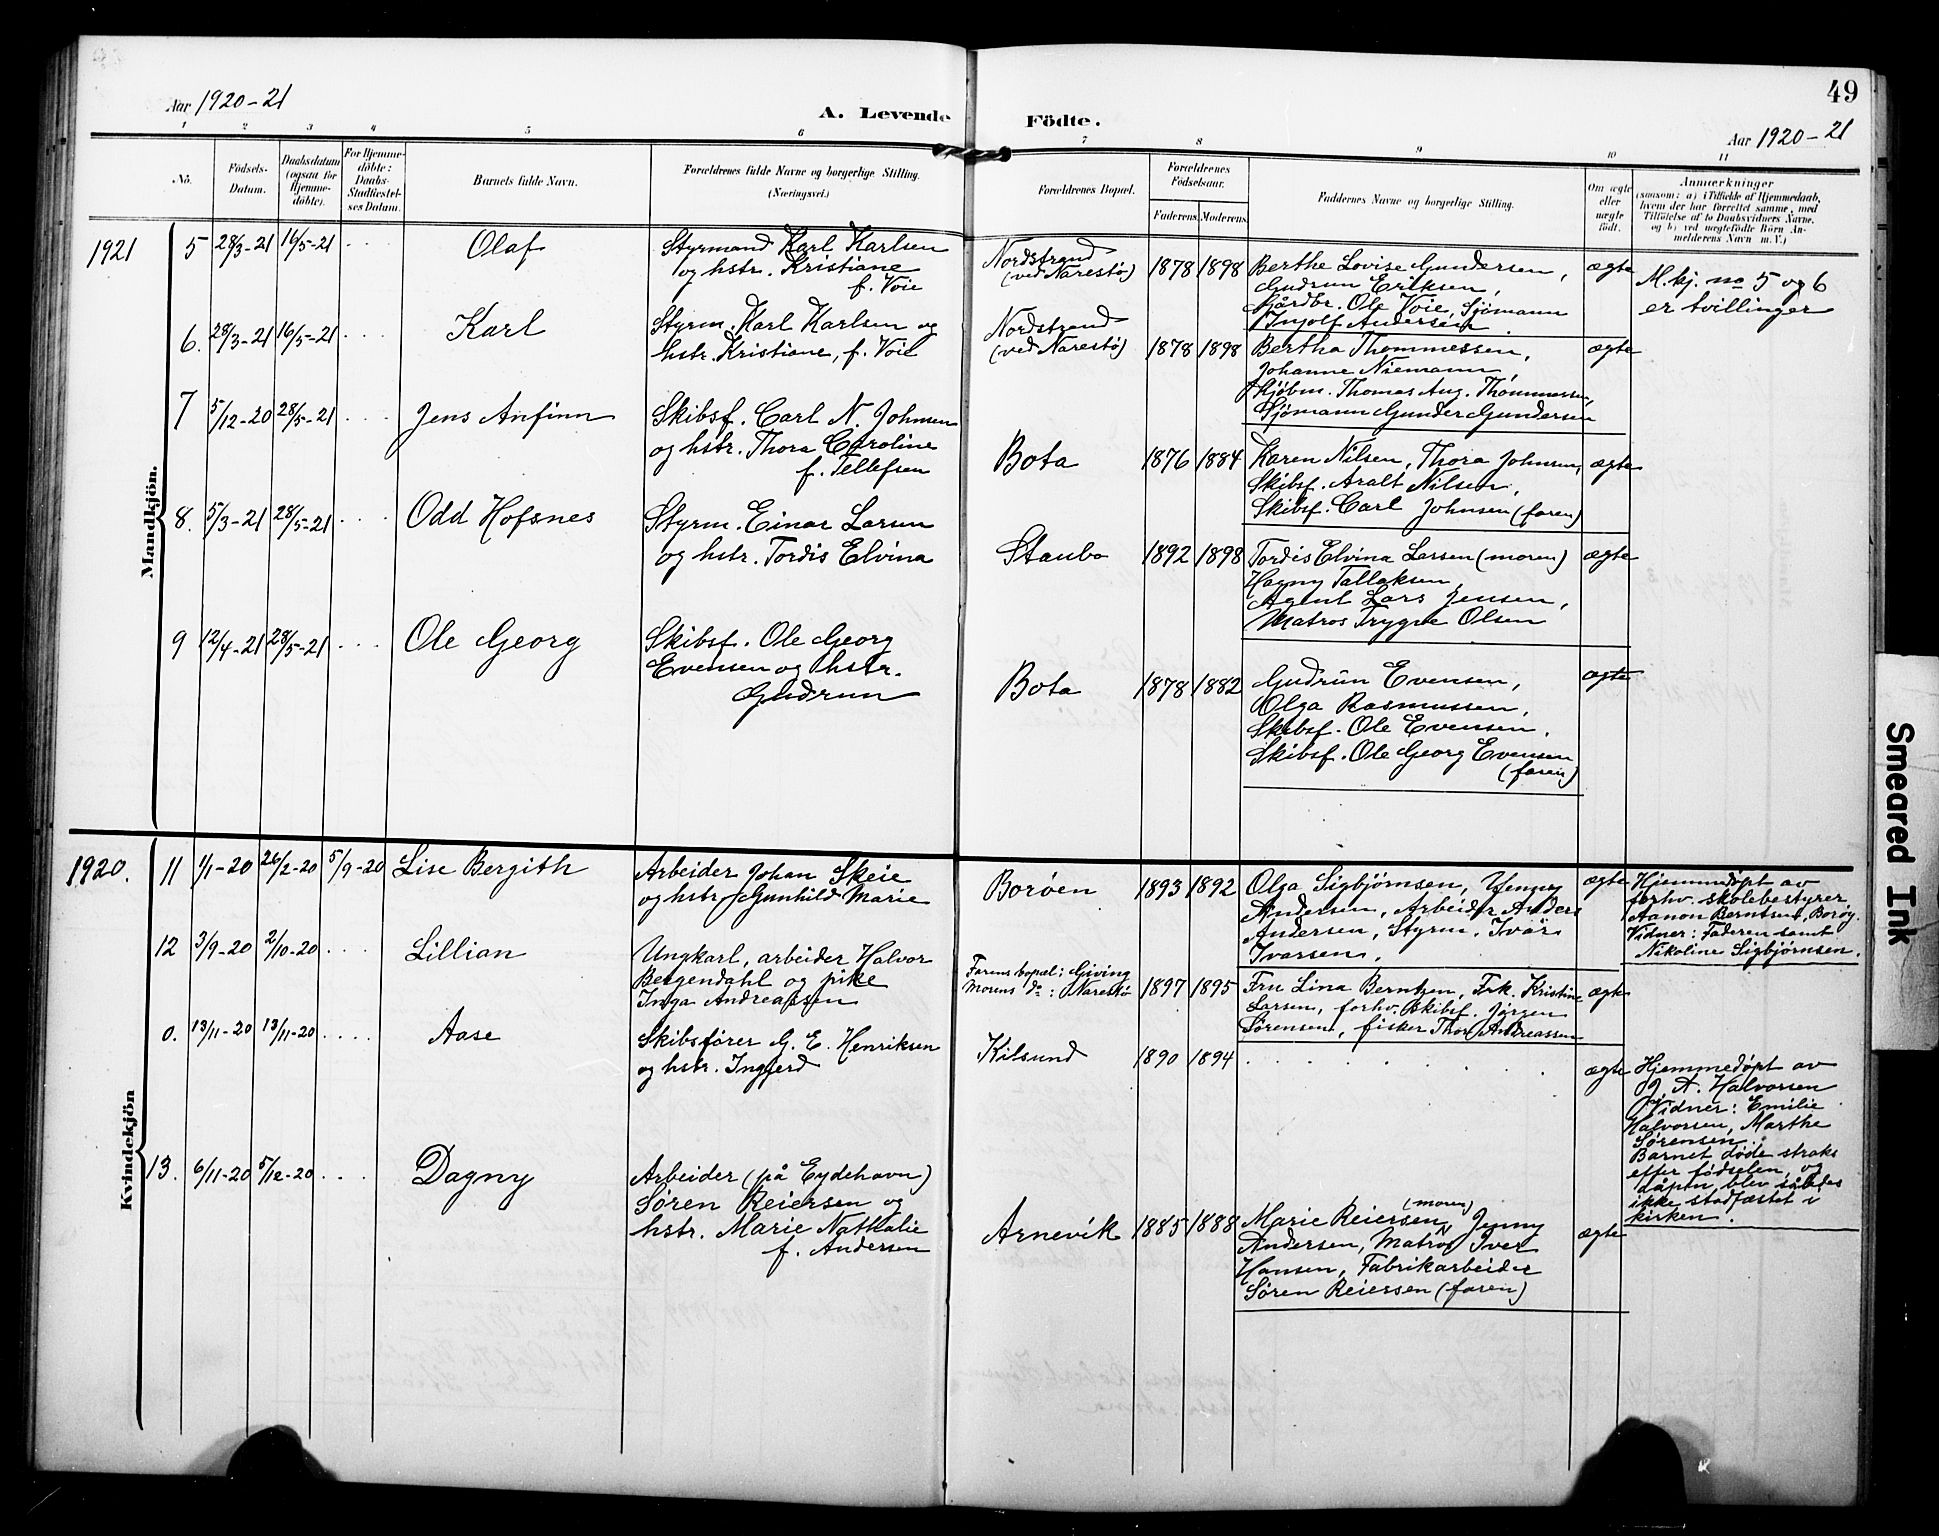 49
Aar 1920-21
A. Levende Födte.
Aar 1920-21
1 2 3 4 5 6 7 8 9 10 11
No.
Födsels-
Datum.
Daabsdatum
(ogsaa for
Hjemme-
döbte).
For Hjemme-
döbte:
Daabs-
Stadfæstel-
ses Datum.
Barnets fulde Navn.
Forældrenes fulde Navne og borgerlige Stilling.
(Næringsvei.)
Forældrenes Bopæl.
Forældrenes
Födselsaar.
Faderens. Moderens.
Faddernes Navne og borgerlige Stilling.
Om ægte
eller
uægte
födt.
Anmærkninger
(saasom: a) i Tilfælde af Hjemmedaab,
hvem der har forrettet samme, med
Tilföielse af to Daabsvidners Navne.
og b) ved uægtefödte Börn An-
melderens Navn m. V.)
Mandkjön.
1921
5 28/3-21 16/5-21 . . . Olaf
Styrmand Karl Karlsen
og hstr. Kristiane
f. Voie
Nordstrand
(ved Narestø)
1878 1898
Berthe Lovise Gundersen,
Gudrun Eriksen,
Gårdbr. Ole Voie, Sjömann
Ingolf Andersen
ægte
M.kj. no 5 og 6
er tvillinger
6. 28/3-21 16/5-21 . . . Karl
Styrm. Karl Karlsen og
hstr. Kristiane, f. Voie
Nordstrand
(ved Narestö)
1878 1898
Bertha Thommessen,
Johanne Niemann,
Kjöbm. Thomas Aug. Thommessen,
Sjömann Gunder Gundersen
ægte
7 5/12-20 28/5-21 . . . Jens Anfinn
Skibsf. Carl N. Johnsen
og hstr. Thora Caroline
f. Tellefsen
Bota
1876 1884
Karen Nilsen, Thora Johnsen,
Skibsf. Aralt Nilsen,
Skibsf. Carl Johnsen (faren)
ægte
8. 5/3-21 28/5-21 . . . Odd Hofsnes
Styrm. Einar Larsen
og hstr. Tordis Elvina
Staubo
1892 1898
Tordis Elvina Larsen (moren)
Hagny Tallaksen
Agent Lars Jensen,
Matros Trygve Olsen
ægte
9 12/4-21 28/5-21 . . . Ole Georg
Skibsf. Ole Georg
Evensen og hstr.
Gudrun
Bota
1878 1882
Gudrun Evensen,
Olga Rasmussen,
Skibsf. Ole Evensen,
Skibsf. Ole Georg Evensen
(faren)
ægte
Kvindekjön
1920.
11 1/1-20 26/2-20 5/9-20 Lise Bergith
Arbeider Johan Skeie
og hstr. Gunhild Marie
Borøen
1893 1892
Olga Sigbjørnsen,
Andersen, Arbeider Anders
Andersen, Styrm. Ivar
Ivarsen.
ægte
Hjemmedøpt av
forhv. skolebestyrer
Aanon Berntsen, Borøy.
Vidner: Faderen samt
Nikoline Sigbjørnsen.
12 3/9-20 2/10-20 . . . . Lillian
Ungkarl, arbeider Halvor
Bergendahl og pike
Inga Andreassen
Farens bopæl: Giving
Morens do: Narestø
1897 1895
Fru Lina Berntzen, Frk. Kristine
Larsen, forhv. skibsf. Jørgen
Sørensen, fisker Thor Andreassen
ægte
0. 13/11-20 13/11-20 . . . . Aase
Skibsfører G. E. Henriksen
og hstr. Ingjerd
Kilsund
1890 1894
. . . . . . .
ægte
Hjemmedøpt av
J. A. Halvorsen
Vidner: Emilie
Halvorsen, Marthe
Sørensen.
Barnet døde straks
efter fødselen, og
dåpen blev således
ikke stadfæstet i
kirken.
13. 6/11-20 5/12-20 . . . Dagny
Arbeider (på Eydehavn)
Søren Reiersen og
hstr. Marie Nathalie
f. Andersen
Arnevik
1885 1888
Marie Reiersen (moren), Jenny
Andersen, Matros Iver
Hansen, Fabrikarbeider
Søren Reiersen (faren)
ægte
Smeared Ink